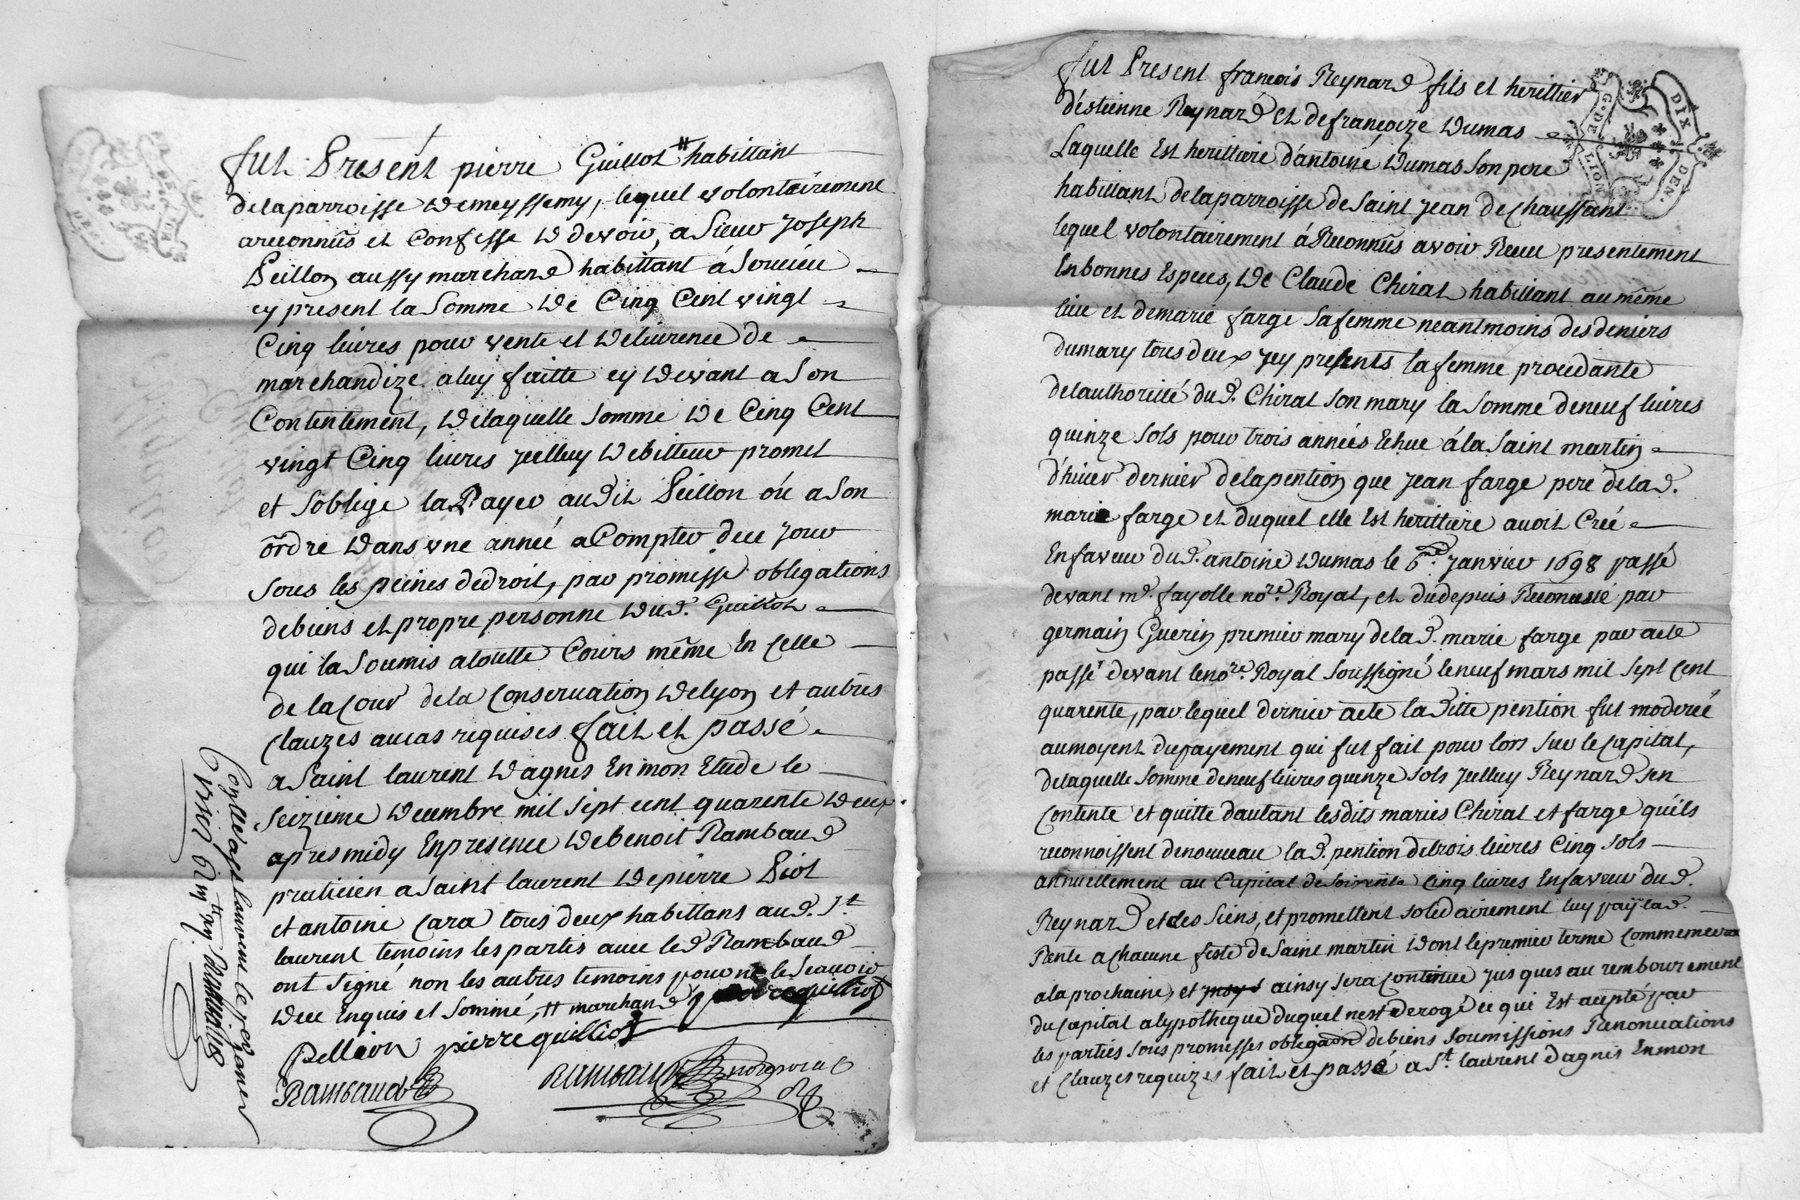 fut Present pierre Guillot # habittant
delaparroisse de meyssemy, lequel volontairement
areconnüs et Confesse de devoir, a Sieur Joseph
Peillon aussy marchand habittant á Soucieu
cy present la Somme de Cinq Cent vingt
Cinq livres pour vente et delivrence de
marchandize aluy faitte cy devant a Son
Contentement, delaquelle Somme de Cinq Cent
vingt Cinq livres jcelluy debitteur promet
et soblige la Payer audit Peillon oú a Son
ordre dans vne année aCompter dece jour
sous les peines dedroit, par promesse obligations
debiens et propre personne dud. Guillot
qui la Soumis atoutte Cours même En Celle
de la Cour de la Conservation delyon et autres
Clauzes aucas requises fait et passé
a Saint laurent dagnis En mon Etude le
seizieme decembre mil sept cent quarente deux
apres midy Enpresence de benoit Rambaud
praticien a Saint laurent de pierre Piot
et antoine Cara tous deux habittans aud. St
laurent temoins les parties avec led Rambaud
ont signé non les autres temoins pour ne le Scavoir
dece Enquis et Sommé, # marchand
pelleion pierre guilliot
Rambaud Rambaud nore royal
Conllé a St laurent le
DIX DEN.
G. DE LION
fut Present francois Reynard fils et herittier
d'estienne Reynard et defrançoize dumas
Laquelle Est herittiere d'antoine dumas Son pere
habittant delaparroisse de Saint jean de Chaussant
lequel volontairement á Reconnüs avoir Receu presentement
Enbonnes Especes, de Claude Chirat habittant aumême
lieu et demarie farge Safemme neantmoins desdeniers
dumary tous deux jcy presents la femme procedante
delauthoritté dud. Chirat Son mary la Somme deneuf livres
quinze Sols pour trois années Echue á la Saint martin
d'hiver dernier delapention que jean farge pere delad.
marie farge et duquel elle Est herittiere avoit Creé
Enfaveur dud. antoine dumas le 6me. janvier 1698 passé
devant me. fayolle nore. Royal, et dudepuis Reconnué par
germain Guerin premier mary delad. marie farge par acte
passé devant lenore. Royal Soussigné leneuf mars mil sept Cent
quarente, par lequel dernier acte laditte pention fut moderée
aumoyent dupayement qui fut fait pour lors Sur le Capital,
delaquelle Somme deneuf livres quinze Sols jcelluy Reynard Sen
Contente et quitte dautant lesdits mariés Chirat et farge qu'ils
reconnoissent denouveau la d. pention detrois livres Cinq Sols
annuellement au Capital de Soixente Cinq livres Enfaveur dud.
Reynard et des Siens, et promettent Solidairement luy payer lad.
Rente a chacune feste de Saint martin dont lepremier terme Commencera
a la prochaine, et ainsy sera Continué jusques au rembourcement
du Capital a lypotheque duquel nest derogé ce qui Est acepté par
les parties Sous promesses obligaons debiens Soumissions Renonciations
et Clauzes requizes fait et passé a St. laurent dagnis Enmon